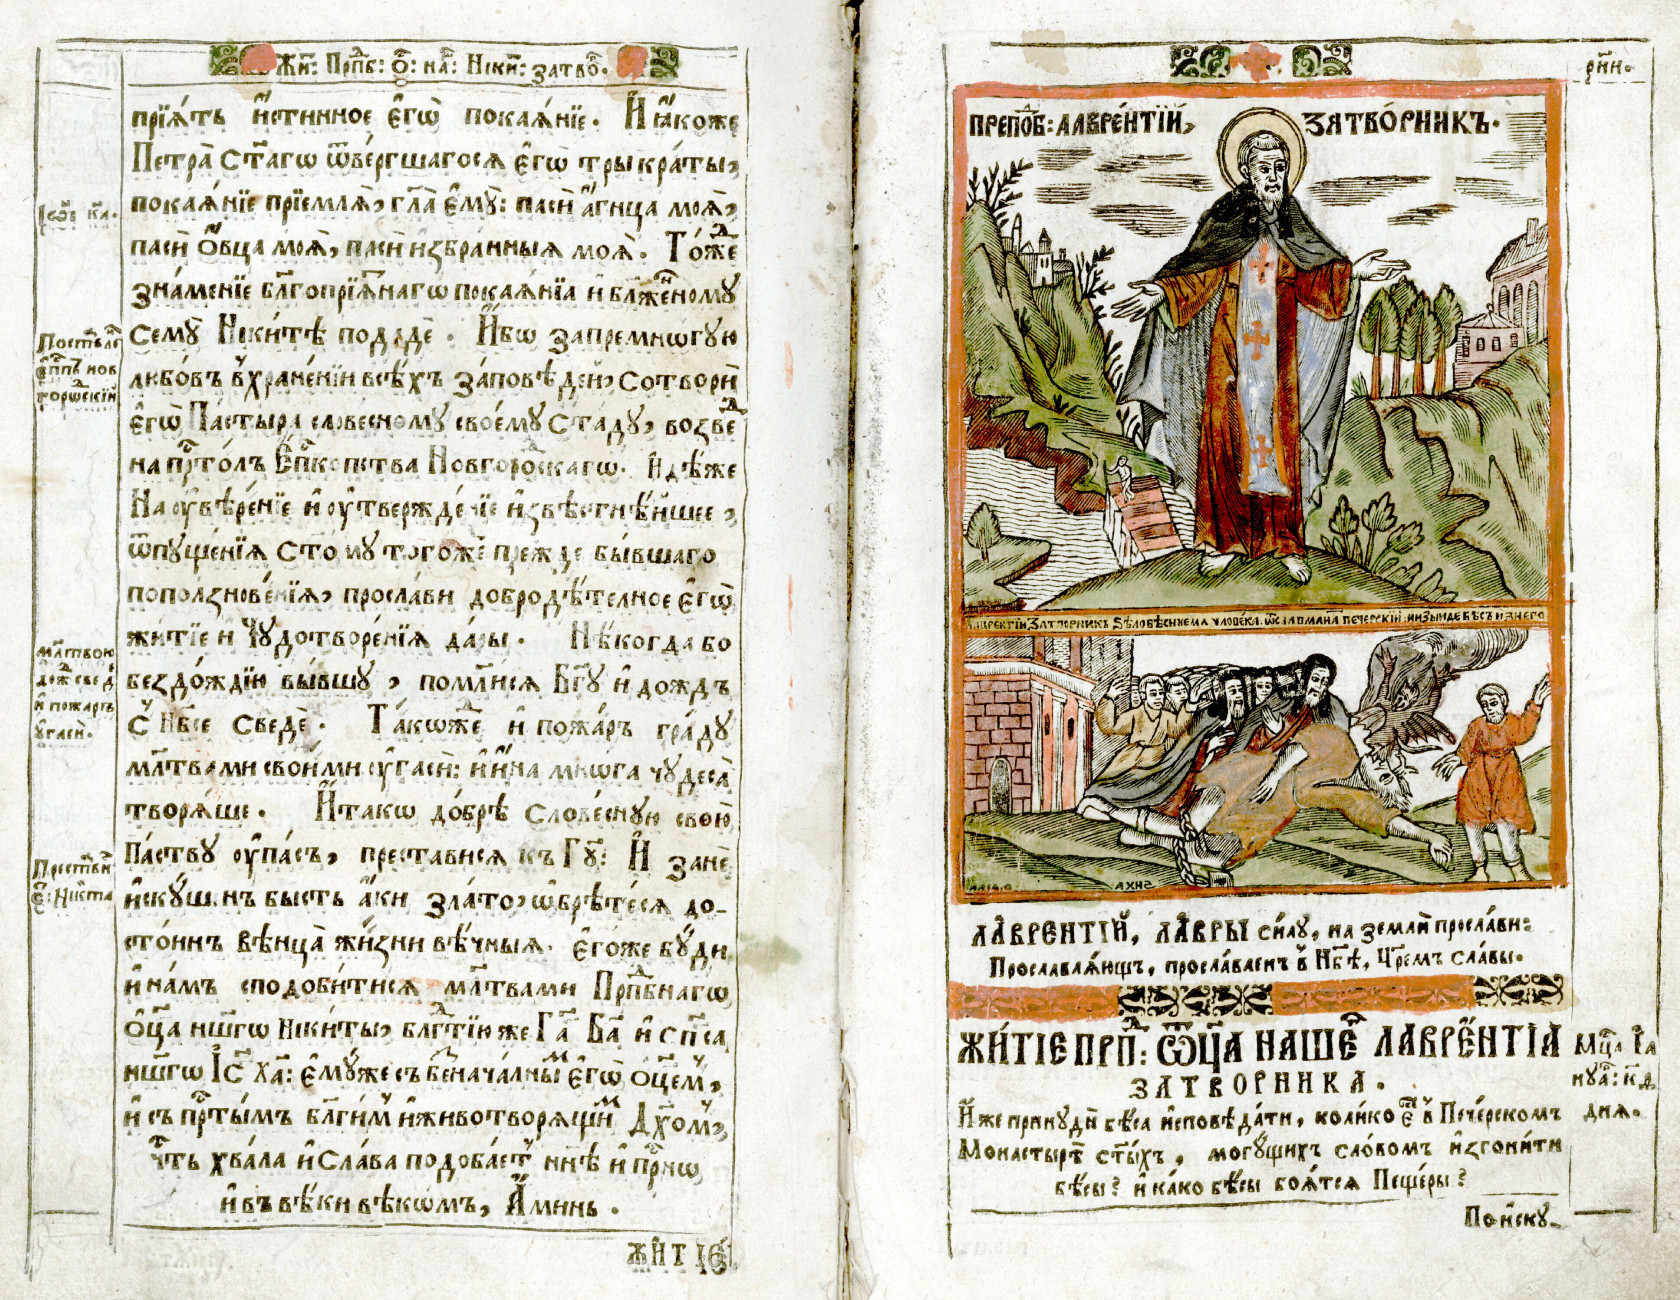 Жи҃: Прпⷣб: Ѻ҃: на҃: Нікиⷮ: затвоⷬ.
прїѧ́ть и҆́стинное є҆гѡ̀ покаѧ́нїе. И҆ ꙗ҆́коже
Петра̀ ст҃а́гѡ ѿве́ргшагосѧ є҆гѡ̀ трыкра́ты,
покаѧ́нїе прїе́млѧ, гл҃а є҆мꙋ̀: пасѝ а҆́гнца моѧ̀,
пасѝ ѻ҆́вца моѧ̀, пасѝ и҆збра́нныѧ моѧ̀. То́жⷣе
зна́менїе бл҃гопрїѧ́тнагѡ покаѧ́нїѧ и҆ бл҃же́нномꙋ
семꙋ̀ Ники́тѣ подадѐ. И҆́бѡ за премно́гꙋю
любо́въ в̾ хране́нїи всѣ́хъ за́повѣдей, сотворѝ
є҆гѡ̀ Па́стырѧ слове́сномꙋ своемꙋ̀ ста́дꙋ, возведⷣе
на прⷭ҇то́лъ Е҆пⷭ҇копства Новгоро́дскагѡ. И҆дѣ́же
На ᲂу҆вѣре́нїе и҆ ᲂу҆твержде́нїе и҆звѣ́стнѣйшее,
ѿпꙋще́нїѧ ст҃о́мꙋ тогѡ́же пре́жде бы́вшаго
поползнове́нїѧ, просла́ви добродѣ́телное є҆гѡ̀
житїѐ и҆ Чꙋдотворе́нїѧ да́ры. Нѣ́когда бо
бездо́ждїю бы́вшꙋ, помл҃и́сѧ Бг҃ꙋ и҆ до́ждъ
с̾ Нб҃се сведѐ. Та́кѡжⷣе и҆ пожа́ръ гра́дꙋ
мл҃твами свои́ми ᲂу҆гасѝ: и҆ и҆́на мнѡ́га чꙋдеса̀
творѧ́ше. И҆ такѡ до́брѣ слове́снꙋю свою̀
Па́ствꙋ ᲂу҆па́съ, преста́висѧ къ Гд҃ꙋ: И҆ занѐ
и҆скꙋ́шенъ бысть а҆́ки зла́то, ѡ҆брѣ́тесѧ до-
сто́инъ вѣнца̀ жи́зни вѣ́чныѧ. є҆го́же бꙋ́ди
и҆ на́мъ сподо́битисѧ мл҃твами Прпⷣбнагѡ
ѻ҆ц҃а на́шгѡ Ники́ты, блгⷣтїю же Гд҃а Бг҃а и҆ сп҃са
на́шгѡ Іс҃ Хⷭ҇а: є҆мꙋ́же съ безнача́лныⷨ є҆гѡ̀ ѻ҆ц҃емъ,
и҆ съ прⷭ҇ты́мъ бл҃ги́мъ и҆ животворѧ́щиⷨ Дх҃омъ,
че́сть хвала̀ и҆ сла́ва подоба́етъ нн҃ѣ и҆ прⷭ҇нѡ
и҆ въ вѣ́ки вѣкѡ́мъ, А҆ми́нь.
ЖИТЇЕ́
Іѡаⷩ: ка.
Поставлеⷩ
є҆пⷭ҇пъ нов
горѡⷣскїй
мл҃твою
дождⷣ сведе
и҆ пожаръ
ᲂу҆гасѝ.
Престаⷡви
сѧ: Никита
рн҃и.
ПРЕПО́Б: ЛАВРЕ́НТЇЙ, ЗАТВО́РНИКЪ.
Лаврентїй затворник
печерскїй
АХНЅ
ЛА́ВРЕНТЇЙ, ЛА́ВРЫ си́лꙋ, на земли̑ просла́ви:
Прославлѧ́ющъ, просла́влѧемъ в̾ Нб҃ѣ, Цр҃емъ сла́вы.
ЖИ́ТЇЕ ПРПⷣ: ѾЦ҃А НА́ШЕⷢ ЛАВРЕ́НТЇА
ЗАТВОРНИКА.
Мц҃а Їа
нꙋа҃: к҃д
днѧ.
И҆́же принꙋдѝ бѣ́са и҆сповѣ́дати, коли́ко є҆́сть в̾ Пече́рскомъ
Монастырѣ̀ ст҃ы́хъ, могꙋ́щихъ сло́вомъ и҆згони́ти
бѣ́сы? и҆ ка́ко бѣ́сы боѧ́тсѧ Пеще́ры?
По и҆́скꙋ